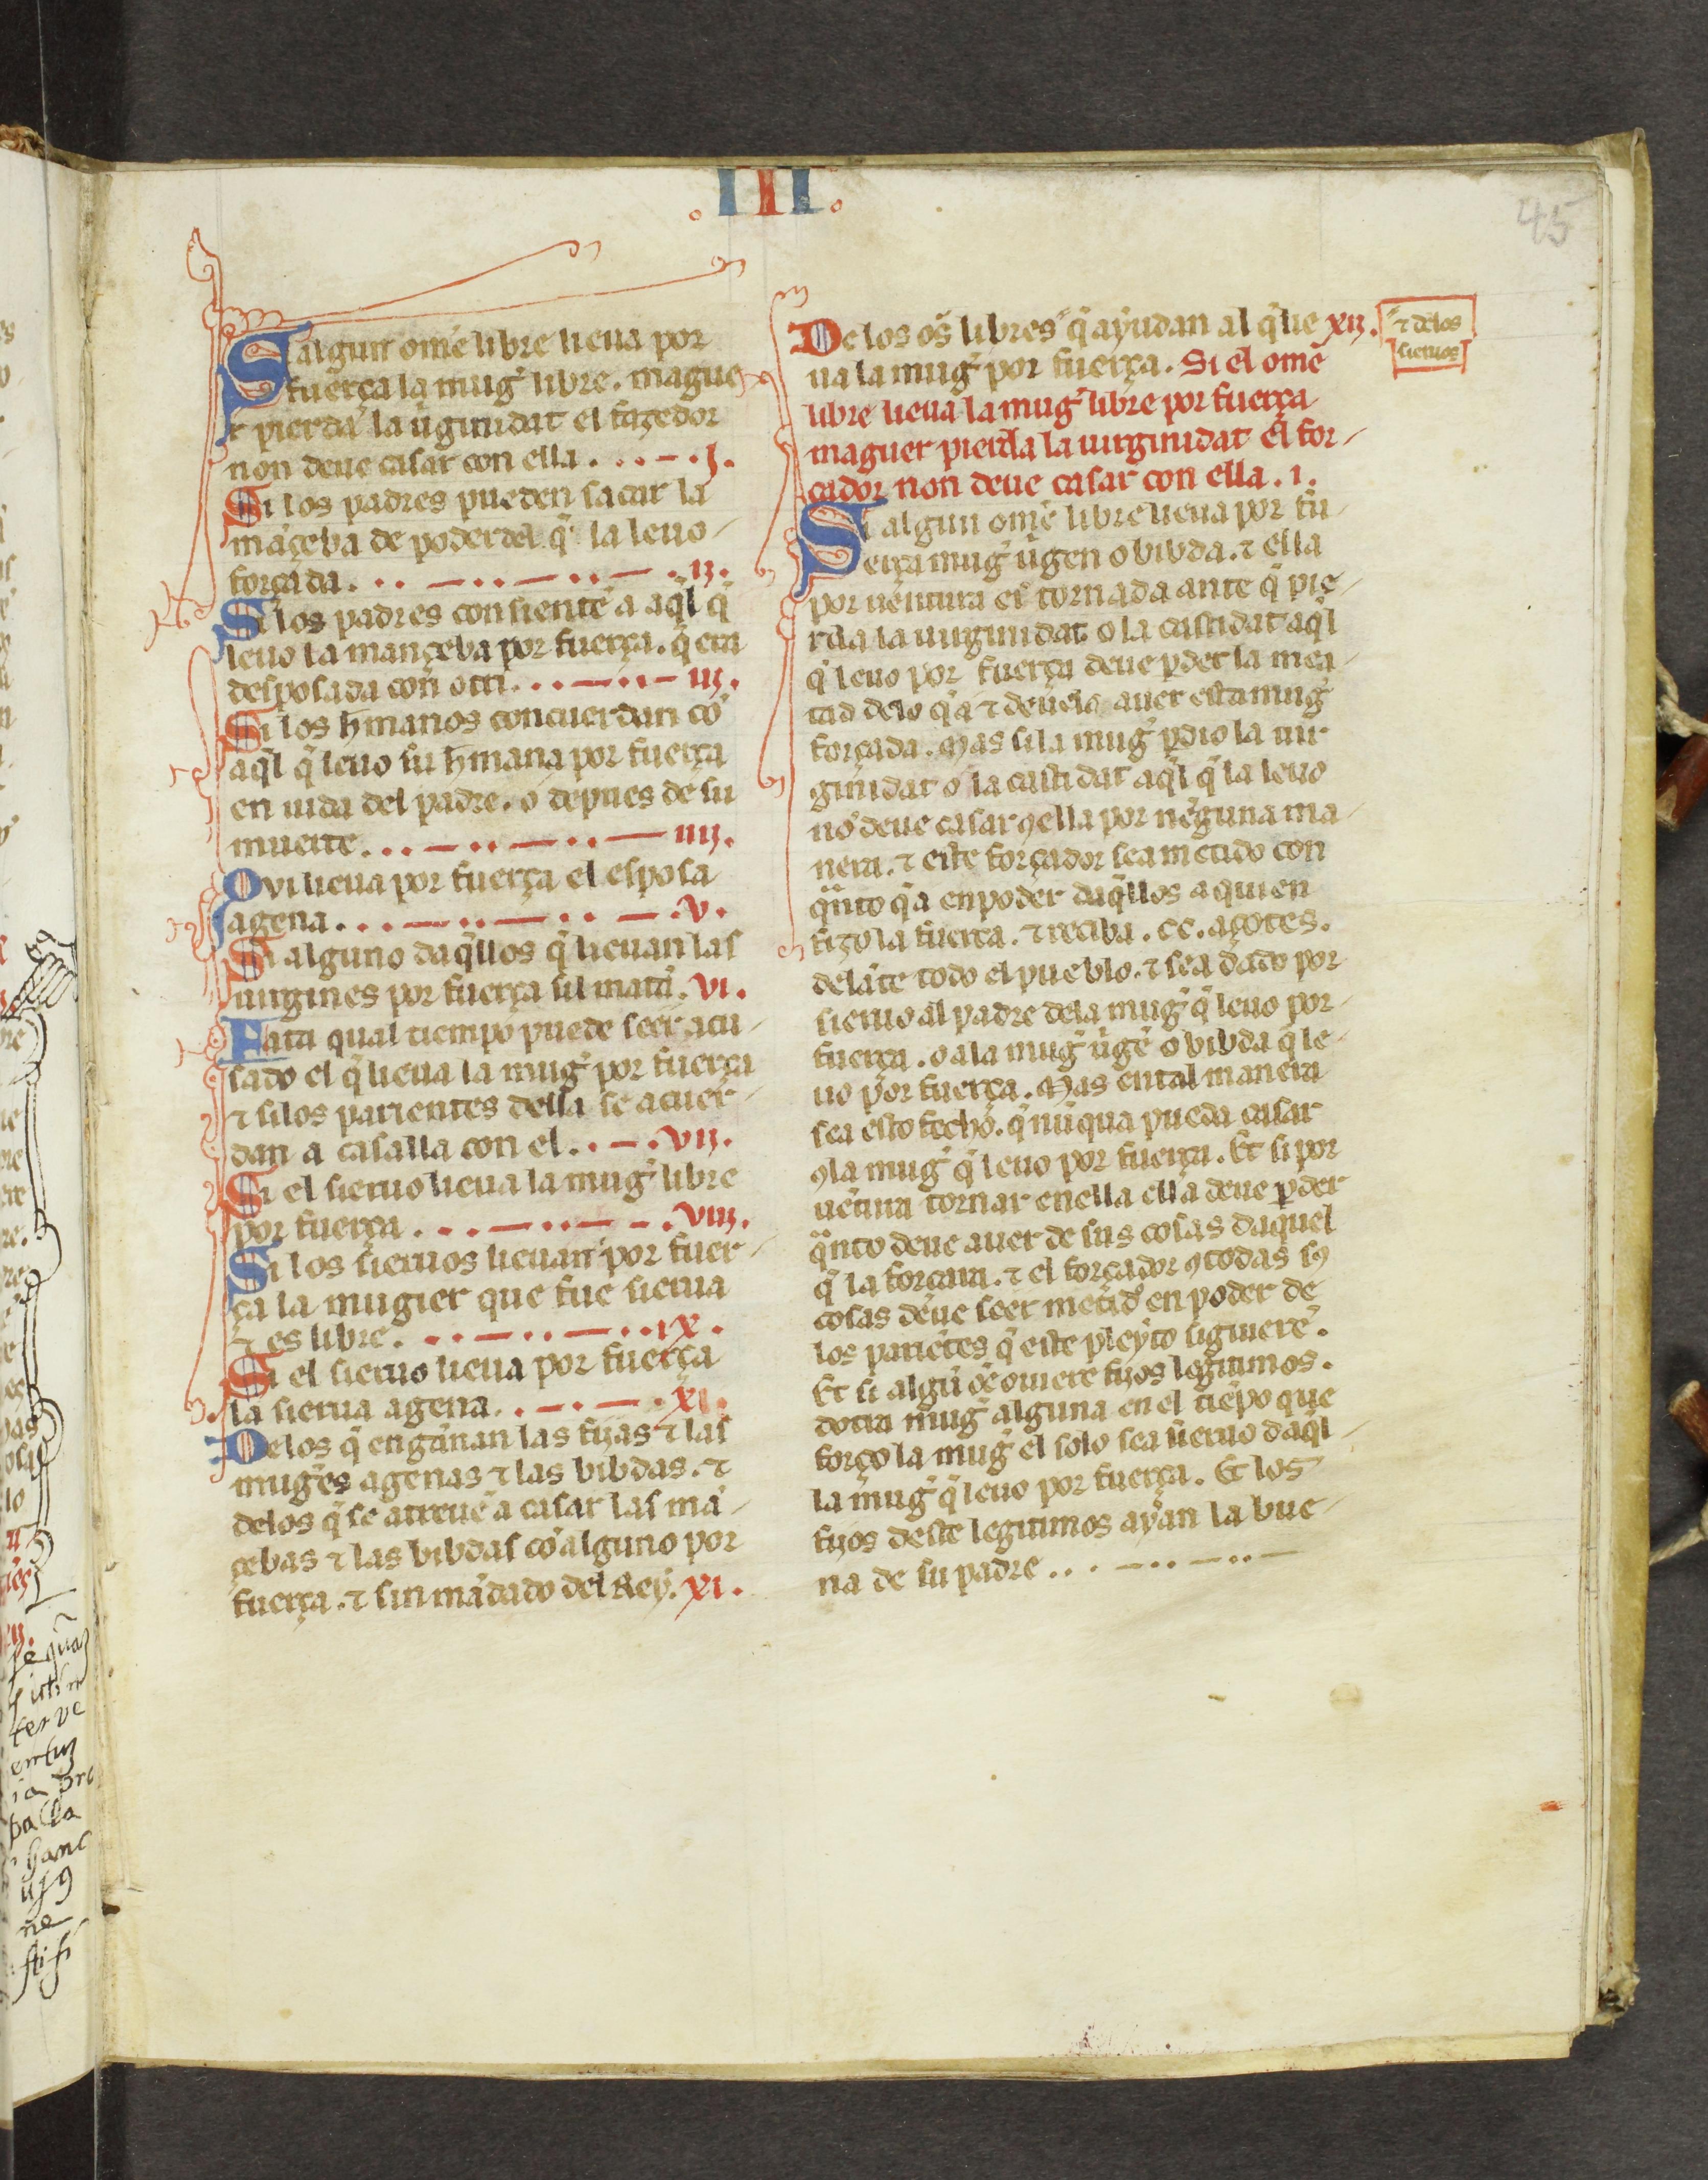 .III.
45
Si algun ome libre lieua por
fuerça la mugr̃ libre. mague
r pierda la uginidat el fazedor
non deue casar con ella. . . . I.
Si los padres pueden sacar la
mãçeba de poder del q̃ la leuo
forçada. . . . II.
Si los padres consientẽ a aq̃l q̃
leuo la mançeba por fuerça. q̃ era
desposada con otri. . . . III.
Si los h̃manos concuerdan cõ
aq̃l q̃ leuo su h̃mana por fuerça
en uida del padre. o depues de su
muerte. . . . IIII.
Qui lieua por fuerça el esposa
agena. . . . V.
Si alguno daq̃llos q̃ lieuan las
uirgines por fuerça sil matã. VI.
Fata qual tiempo puede seer acu
sado el q̃ lieua la mugr̃ por fuerça
⁊ si los parientes della se acuer
dan a casalla con el. . . VII.
Si el sieruo lieua la mugr̃ libre
por fuerça. . . . VIII.
Si los sieruos lieuan por fuer
ça la mugier que fue sierua
⁊ es libre. . . . IX.
Si el sieruo lieua por fuerça
la sierua agena. . . . XI.
De los q̃ engannan las fijas ⁊ las
mugr̃es agenas ⁊ las bibdas. ⁊
delos q̃ se atreuẽ a casar las mã
çebas ⁊ las bibdas cõ alguno por
fuerça. ⁊ sin mãdado del Rey. XI.
De los oẽs libres q̃ ayudan al q̃ lie XII.
⁊ delos
sieruos
ua la mugr̃ por fuerça. Si el ome
libre lieua la mugr̃ libre por fuerça
maguer pierda la uirginidat el for
çador non deue casar con ella. I.
Si algun ome libre lieua por fu
erça mugr̃ ũgen o bibda. ⁊ ella
por uentura es tornada ante q̃ pie
rda la uirginidat o la castidat aq̃l
q̃ leuo por fuerça deue ꝑder la mea
tad delo q̃ a ⁊ deuelo auer esta mugr̃
forçada. Mas si la mugr̃ ꝑdio la uir
ginidat o la castidat aq̃l q̃ la leuo
nõ deue casar ꝯella por nẽguna ma
nera. ⁊ este forçador sea metido con
q̃nto q̃ a en poder daq̃llos a quien
fizo la fuerça. ⁊ reciba. CC. açotes.
delãte todo el pueblo. ⁊ sea dado por
sieruo al padre dela mugr̃ q̃ leuo por
fuerça. o a la mugr̃ ũgẽ o bibda q̃ le
uo por fuerça. Mas en tal manera
sea esto fecho. q̃ nũqua pueda casar
ꝯla mugr̃ q̃ leuo por fuerça. Et si por
uẽtura tornar en ella ella deue ꝑder
q̃nto deue auer de sus cosas daquel
q̃ la forçara. ⁊ el forçador ꝯtodas sꝯ
cosas deue seer metido en poder de
los pariẽtes q̃ este pleyto siguierẽ.
Et si algũ oẽ ouiere fijos legitimos.
dotra mugr̃ alguna en el tiẽpo que
forço la mugr̃ el solo sea sieruo daq̃l
la mugr̃ q̃ leuo por fuerça. Et los
fijos deste legitimos ayan la bue
na de su padre . . .